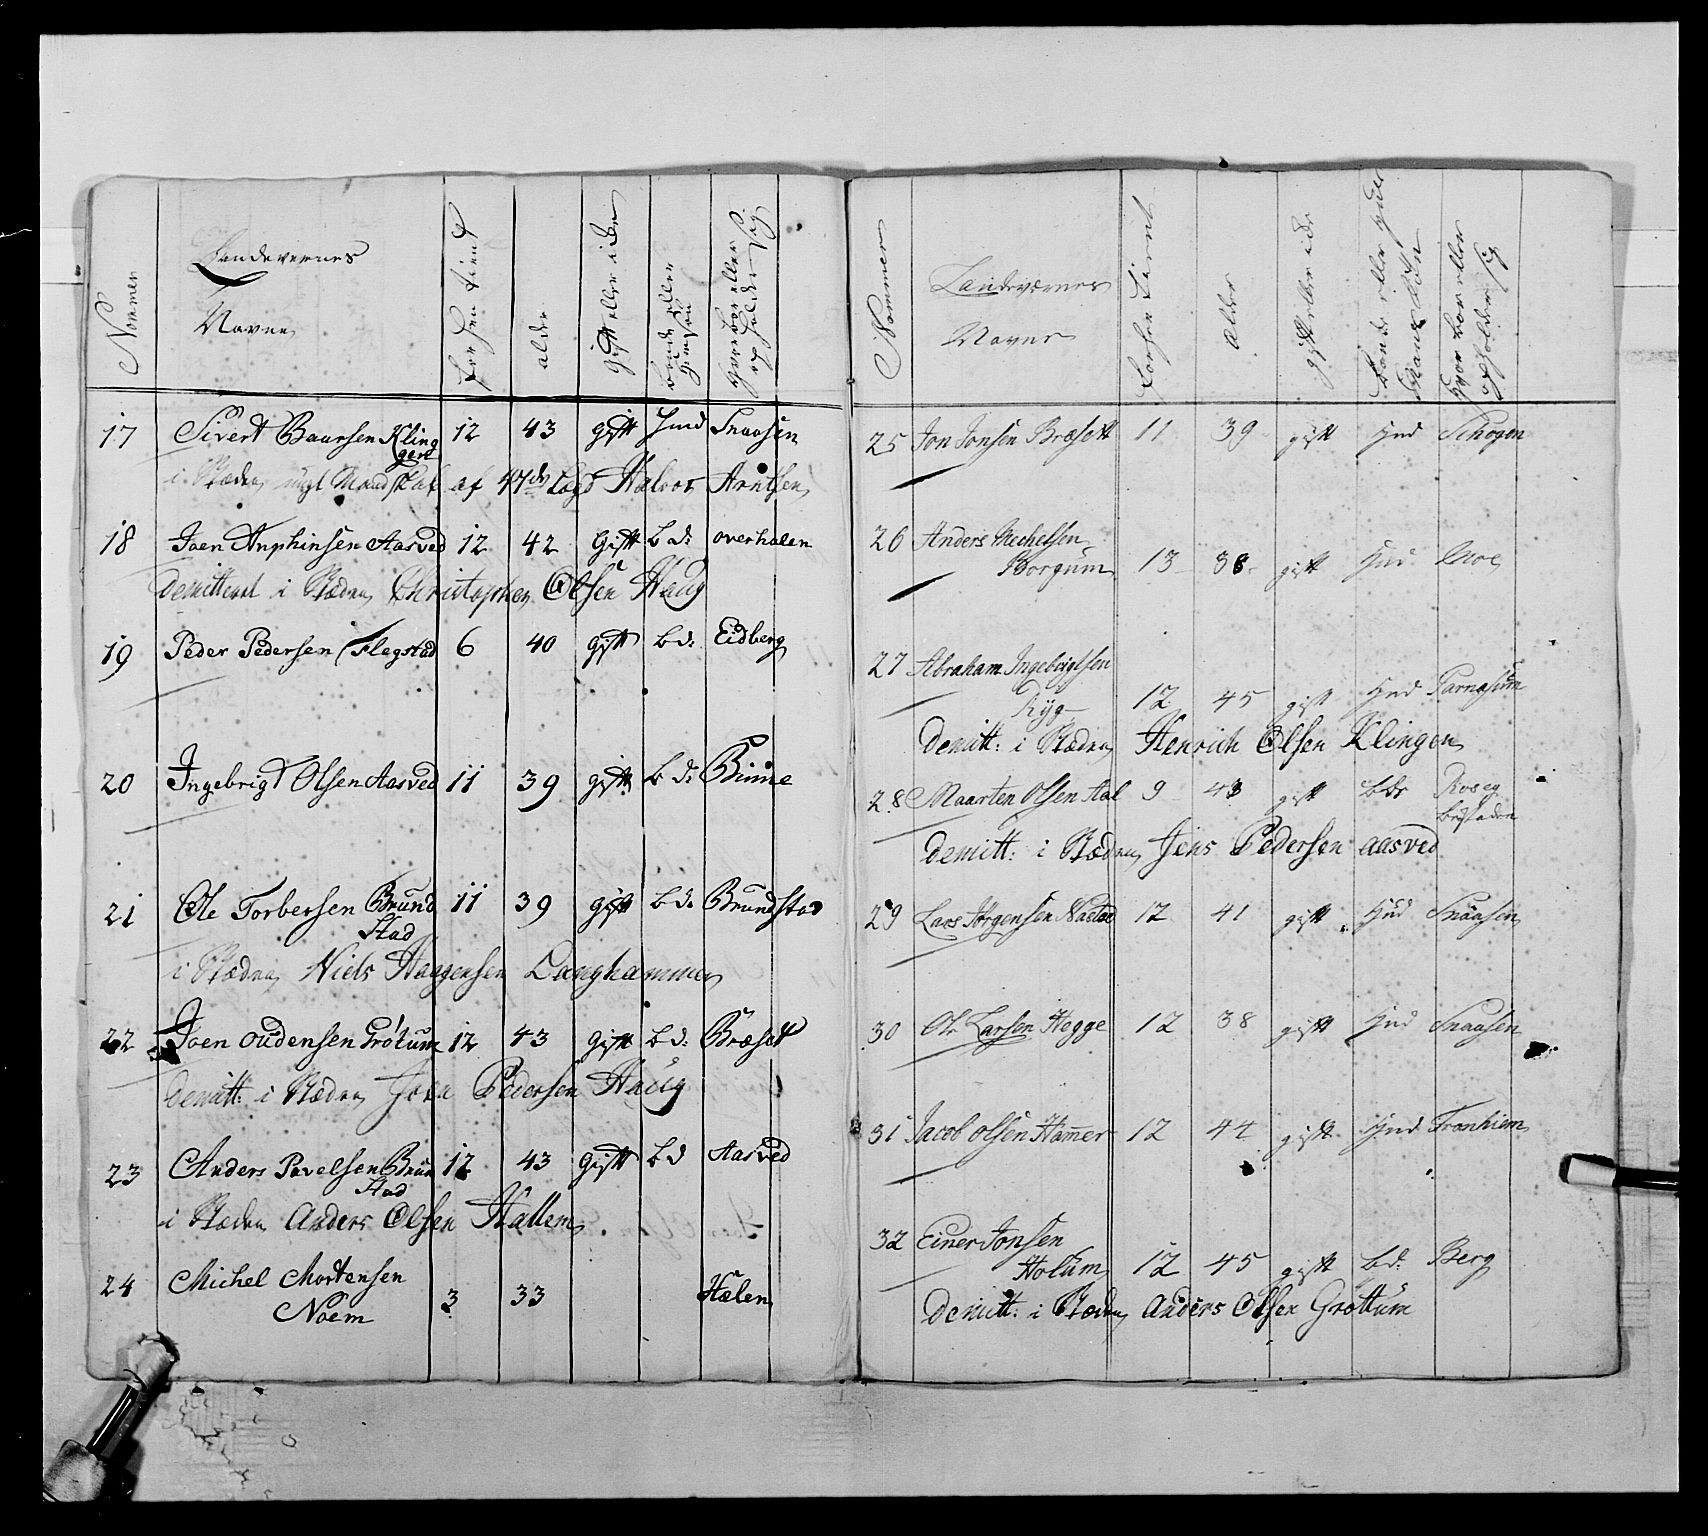 Nommer
Landevernes
Navne
forhen tient
alder
gift eller ei
bonde eller
hvor boer eller
op holder sig
17 Sivert Baarsen Kling 12 43 gift Hmd Snaasen
gen
i Stæden ungt Mandskab af 47de Lægd Halvor Arntsen
18 Joen Anphinsen Aasved 12 42 Gift bd: overhalen
demitteret i Stæden Christopher Olsen Haug
19 Peder Pedersen Flegstad 6 40 gift bd: Eidberg
20 Ingebrigt Olsen Aasved 11 39 gift bd: Binne
21 Ole Torbersen Brund 11 39 gift bd: Brundstad
Stad
i Stæden Niels Haagensen Langhammer
22 Joen oudensen Grötum 12 43 gift bd: Bræset
demitt: i Stæden Joen Pedersen Haug
23 Anders Pavelsen Brun 12 43 Gift bd Aasved
Stad
i Stæden Anders Olsen Hallem
24 Michel Mortensen
Noem 3 33 Hælen
Nommer
Landeværnes
Navne
forhen tient
alder
gift eller ei
hvor boer eller
opholder sig
25 Jon Jonsen Bræset 11 39 gift Hmd Schogen
26 Anders Mechelsen
Borgum 13 38 gift Hmd Moe
27 Abraham Ingebrigtsen
Ryg 12 45 gift Hmd Parnasum
Demitt: i Stæden Henrich Olsen Klingen
28 Maarten Olsen Aal 9 43 gift
Demitt: i Stæden Jens Pedersen aasved
29 Lars Jörgensen Nastad 12 41 gift Hmd Snaasen
30 Ole Larsen Hegge 12 38 gift Hmd Snaasen
31 Jacob olsen Hamer 12 44 gift Hmd Tronhiem
32 Einer Jonsen
Holum 12 45 gift bd: Berg
Demitt: i Stæden Anders Olsen Grøttum